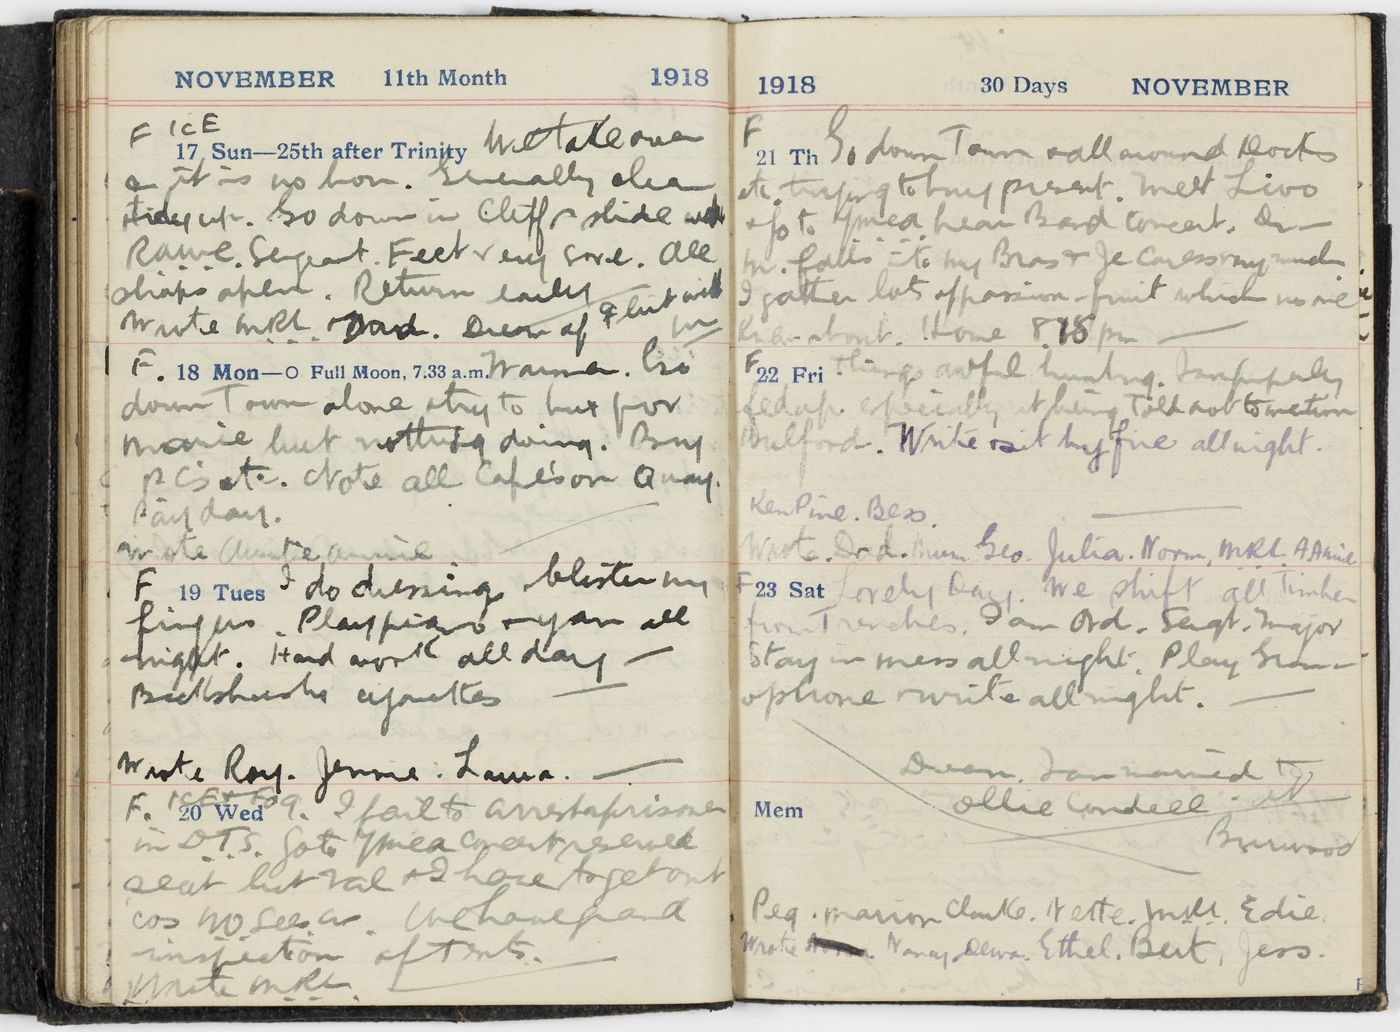 NOVEMBER 11th Month 1918
F ICE
17 Sun—25th after Trinity We take over
& it is no bon. Generally clean
& tidy up. Go down in Cliff & slide with
Sergeant. Feet very sore. All
shops open. Return early
Write MRL. & Dad. Dream of
F. 18 Mon—O Full Moon, 7.33 a.m. Warmer. Go
down Town alone & try to for
Marie but nothing doing. Buy
P C's etc. Note all Cafe's on Quay.
Pay day.
Wrote Auntie Annie
F 19 Tues I do dressings, blister my
fingers. Play piano & yarn all
night. Hard work all day —
cigarettes —
Wrote Roy. Jennie. Laura. —
F. ICE & Fog.
20 Wed I fail to arrest a prisoner
in DTS. Go to Ymca concert reserved
seat but Val & I have to get out
cos no We have grand
inspection of Tents.
Wrote MRL.
1918 30 Days NOVEMBER
F
21 Th Go down Town & all around Docks
etc. trying to buy present. Meet
& go to Ymca, hear Band concert. Dr—
m. falls into my & caress very much
I gather lots of passion-fruit which no one
knew about. Home 8.15 pm —
F
22 Fri Things awful hunting.
fed up especially at being Told not to mention
Bulford. Write & sit by fire all night.
Ken Pine. Bess.
Wrote. Dad. Mum. Geo. Julia. Norm, MRL. A Annie
F 23 Sat Lovely Day. We shift all Timber
from Trenches. I am Ord. Sergt. Major
Stay in mess all night. Play Gram—
ophone & write all night. —
Dream. I am married to
Ollie Condell
Mem
Burwood
Peg. Marion Clarke. Nette. MRL. Edie.
Wrote Nancy Ethel. Bert, Jess.